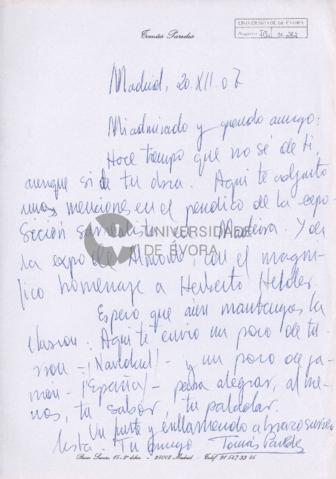 Tomás Paredes
UNIVERSIDADE DE ÉVORA
Madrid, 20.XII.07
Mi admirado y querido amigo:
Hace tiempo que no sé de ti,
aunque sí de tu obra. Aquí te adjunto
unas menciones en el periódico de la expo-
sición surrealista Madeira. Y de
la expo de con el magní-
fico homenaje a Herberto Helder.
Espero que aún mantengas la
ilusión. Aquí te envío un poco de tu
- ¡Navidad! - y un poco de ja-
món - ¡España! - para alegrar, al me-
nos, tu sabor, tu paladar.
Un fuerte y abrazo surrea-
lista. Tu amigo Tomás Paredes
UNIVERSIDADE
DE ÉVORA
15-2º - 28002 Madrid -